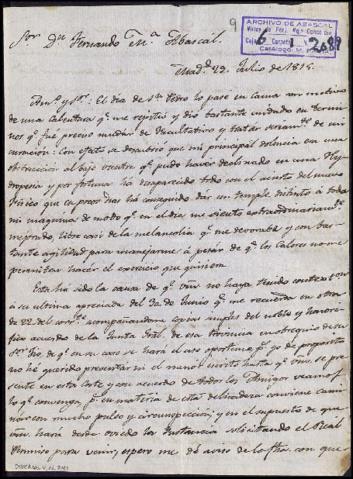 9
ARCHIVO DE ABASCAL
2089
Sor. Dn. Fernando Ma. Abascal.
Madd. 22. Julio de 1815.
El dia de Sn. Pedro lo pasé en cama con motivo
de una calentura qe. me repitió y dió bastante cuidado en termi-
nos qe. fué preciso mudar de Facultativo y tratar seriamte. de mi
curacion: Con efecto se descubrió que mi principal dolencia era una
obstruccion al bajo vientre qe. pudo haver declinado en una Hy-
dropesia y por fortuna ha desaparecido todo con el acierto del nuevo
Fisico que en pocos dias ha conseguido dar un temple distinto á toda
mi maquina de modo qe. en el dia me siento extraordinariamte.
mejorado, libre casi de la melancolia qe. me devoraba y con bas-
tante agilidad para manejarme á pesar de qe. los calores no me
permitan hacer el exercicio que quisiera.
Esta há sido la causa de qe. no haya tenido contextacion
á su ultima apreciada del 30 de Junio qe. me recuerda en otra
de 22 del corrte. acompañandome copia simple del noble y honori-
fico acuerdo de la Junta Gral. de esa Provincia en obsequio de su
Sor. Tio, de qe. en su caso se hará el uso oportuno qe. yo de proposito
no hé querido presentar ni el menor escrito hasta qe. se pre-
sente en esta Corte y con acuerdo de todos los Amigos veamos
lo qe. convenga, pr. qe. en materia de esta delicadeza conviene cami-
nar con mucho pulso y circunspeccion; y en el supuesto de que
hará desde Oviedo la Instancia solicitando el Real
Permiso para venir, espero me dé aviso de la fha. con que